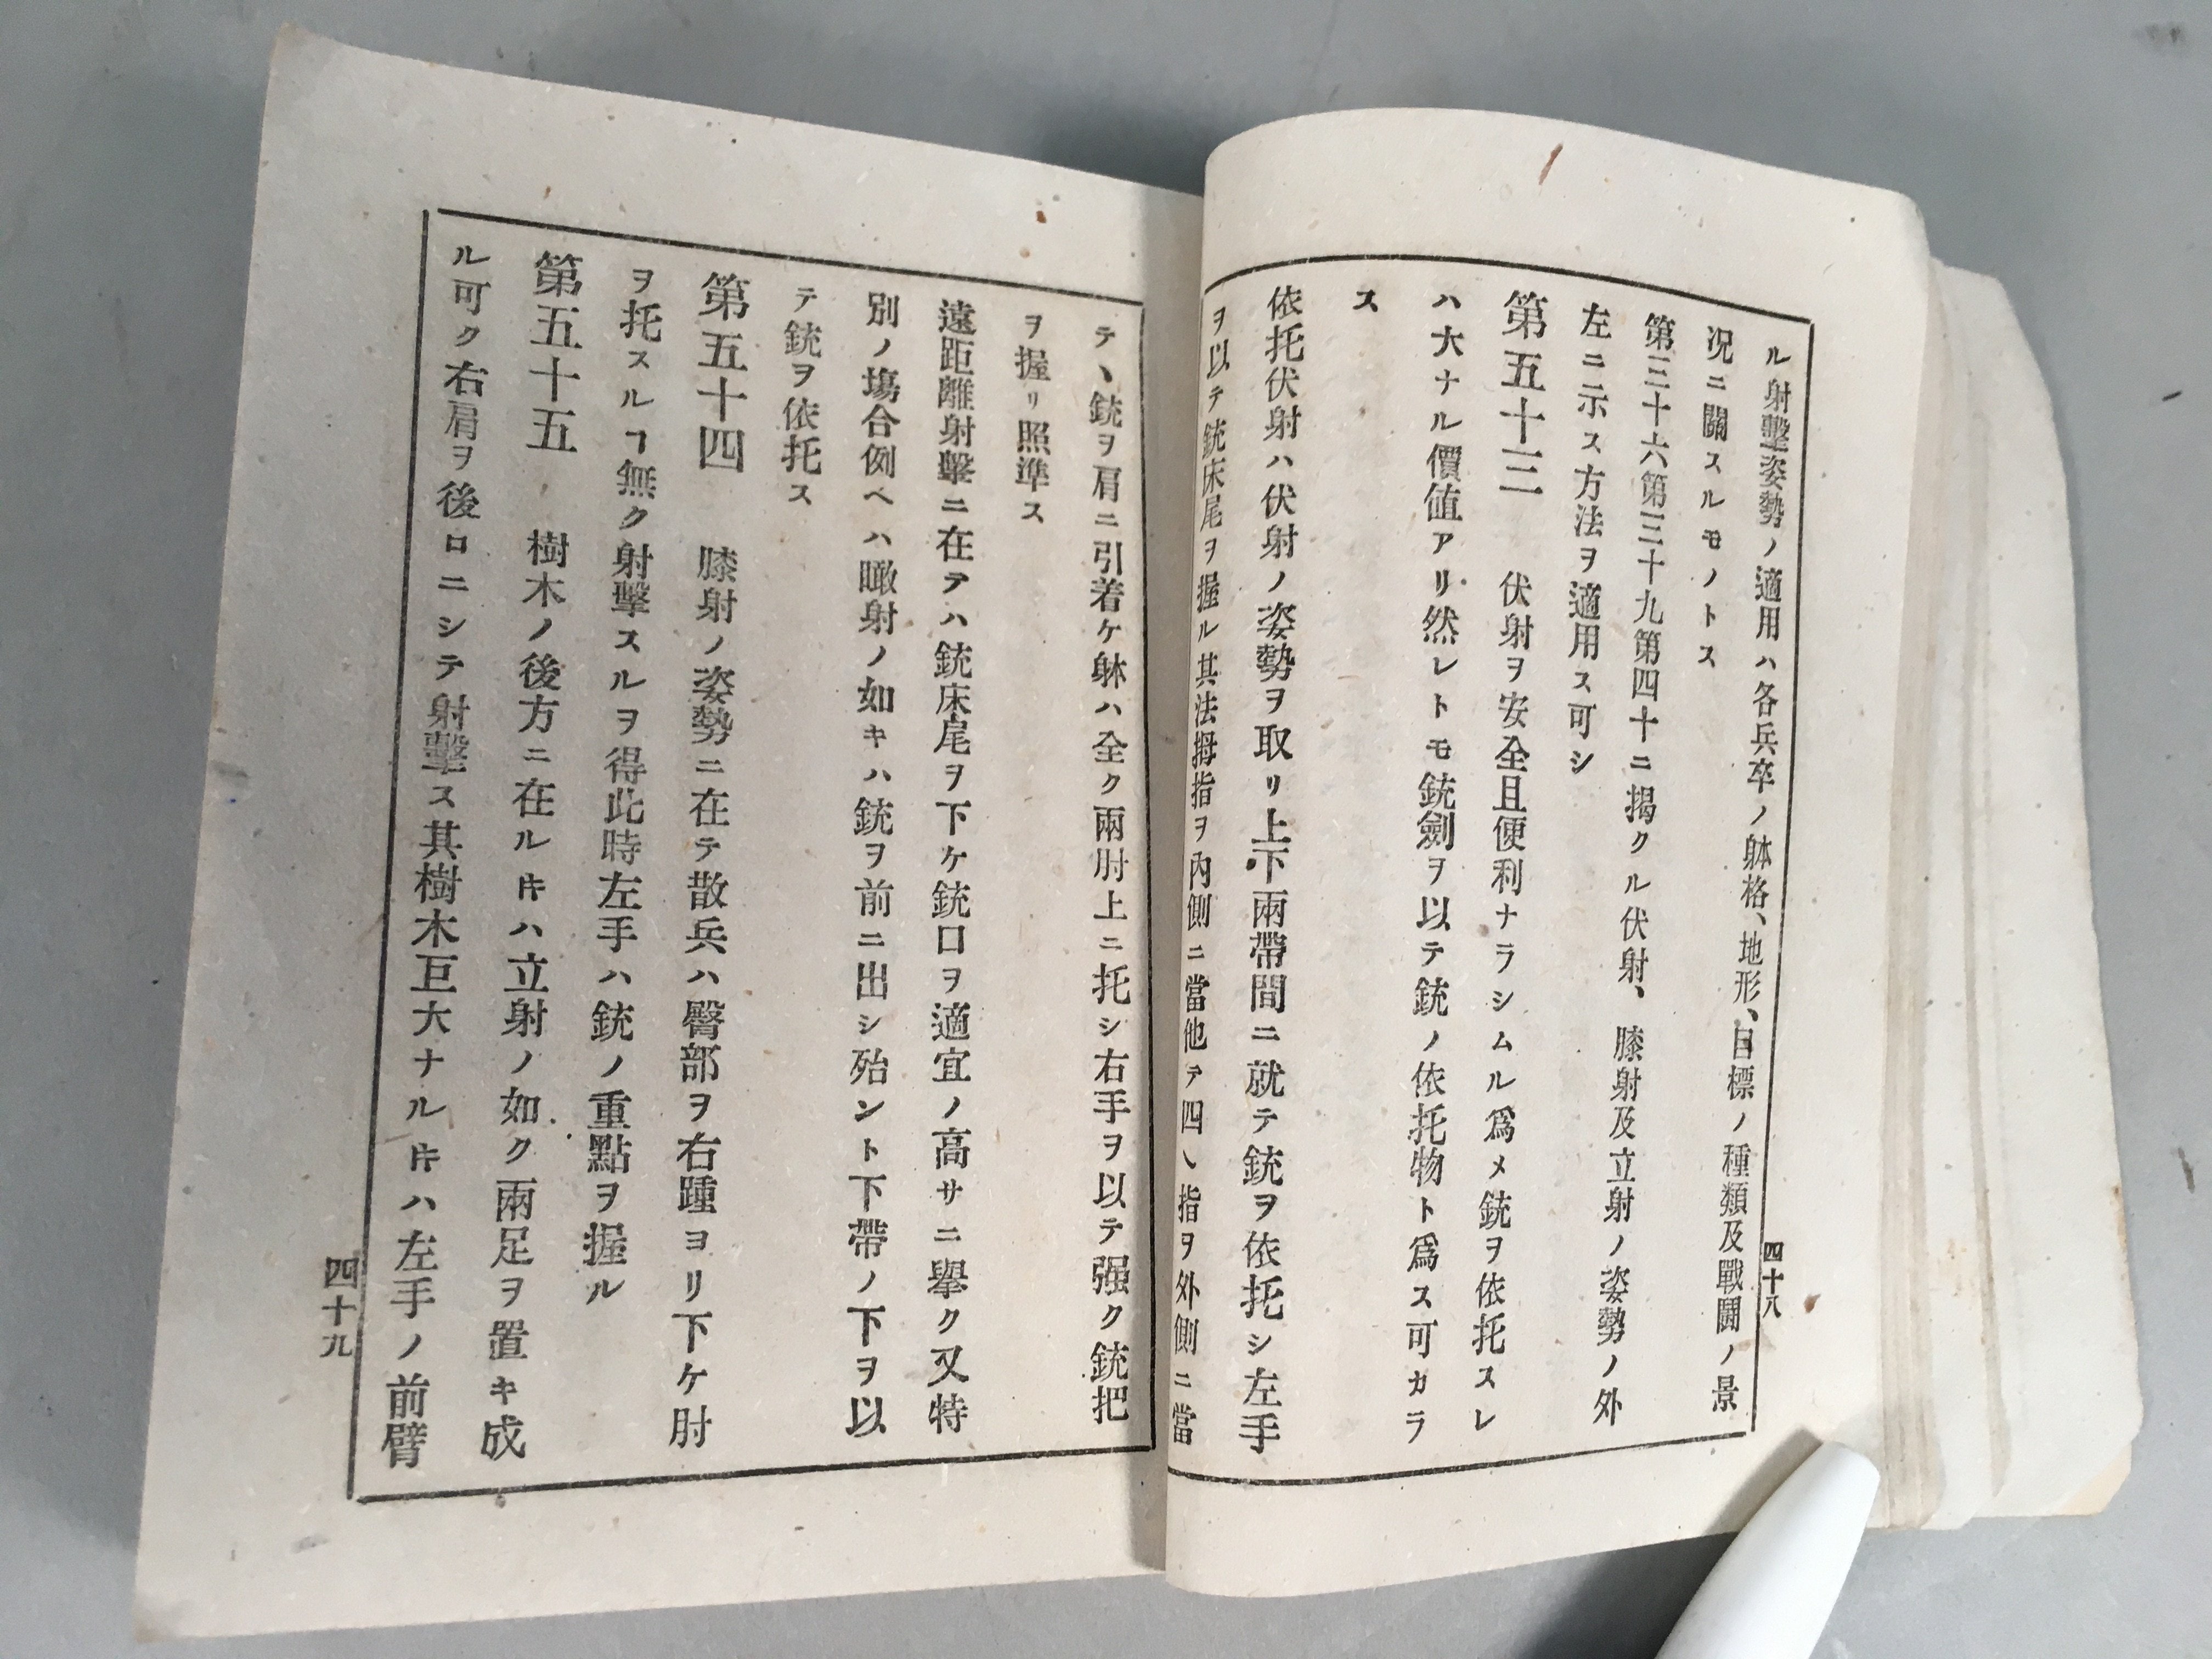 ル射擊姿勢ノ適用ハ各兵卒ノ躰格、地形、目標ノ種類及戰鬪ノ景
况ニ關スルモノトス
第三十六第三十九第四十ニ揭クル伏射、膝射及立射ノ姿勢ノ外
左ニ示ス方法ヲ適用ス可シ
第五十三　伏射ヲ安全且便利ナラシムル爲メ銃ヲ依托スレ
ハ大ナル價値アリ然レトモ銃劍ヲ以テ銃ノ依托物ト爲ス可カラ
ス
依托伏射ハ伏射ノ姿勢ヲ取リ上下兩帶間ニ就テ銃ヲ依托シ左手
ヲ以テ銃床尾ヲ握ル其法拇指ヲ內側ニ當他テ四ヽ指ヲ外側ニ當
四十八
テヽ銃ヲ肩ニ引着ケ躰ハ全ク兩肘上ニ托シ右手ヲ以テ强ク銃把
ヲ握リ照準ス
遠距離射擊ニ在テハ銃床尾ヲ下ケ銃口ヲ適宜ノ高サニ擧ク又特
別ノ塲合例ヘハ瞰射ノ如キハ銃ヲ前ニ出シ殆ント下帶ノ下ヲ以
テ銃ヲ依托ス
第五十四　膝射ノ姿勢ニ在テ散兵ハ臀部ヲ右踵ヨリ下ケ肘
ヲ托スルヿ無ク射擊スルヲ得此時左手ハ銃ノ重點ヲ握ル
第五十五　樹木ノ後方ニ在ル𪜈ハ立射ノ如ク兩足ヲ置キ成
ル可ク右肩ヲ後ロニシテ射擊ス其樹木巨大ナル𪜈ハ左手ノ前臂
四十九